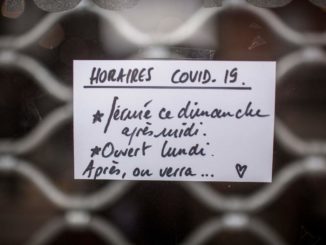 HORAIRES COVID. 19.
* Fermé ce dimanche
après midi.
* Ouvert lundi.
Après, on verra ... ♡